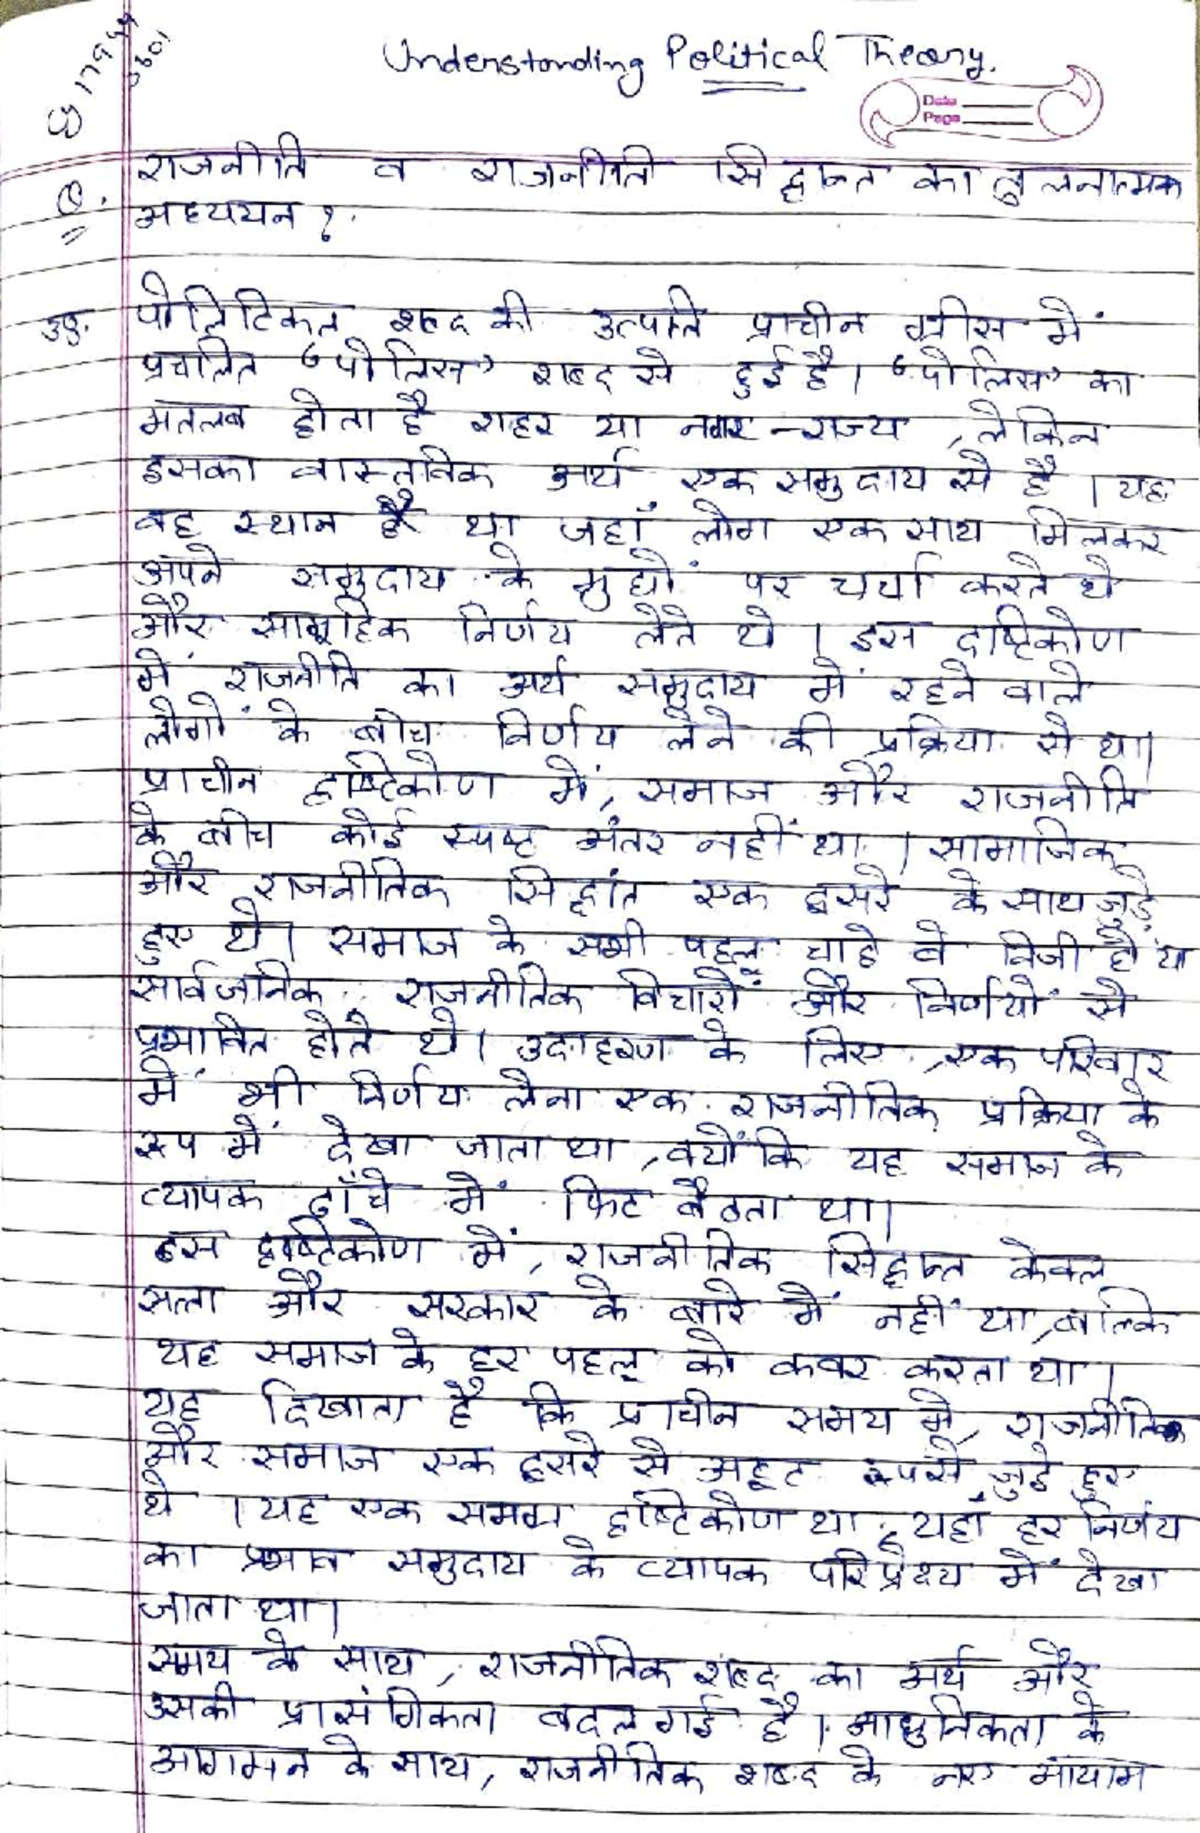 Understanding Political Theory.
Date
Page
Q. राजनीति व राजनीति सिद्धान्त का तुलनात्मक
अध्ययन ?
उ॰ पोलिटिकल शब्द की उत्पत्ति प्राचीन ग्रीस में
प्रचलित "पोलिस" शब्द से हुई है। "पोलिस" का
मतलब होता है शहर या नगर-राज्य, लेकिन
इसका वास्तविक अर्थ एक समुदाय से है। यह
वह स्थान था जहाँ लोग एक साथ मिलकर
अपने समुदाय के मुद्दों पर चर्चा करते थे
और सामूहिक निर्णय लेते थे। इस दृष्टिकोण
में राजनीति का अर्थ समुदाय में रहने वाले
लोगों के बीच निर्णय लेने की प्रक्रिया से था।
प्राचीन दृष्टिकोण में, समाज और राजनीति
के बीच कोई स्पष्ट अंतर नहीं था। सामाजिक
और राजनीतिक सिद्धांत एक दूसरे के साथ जुड़े
हुए थे। समाज के सभी पहलू चाहे वे निजी हो या
सार्वजनिक, राजनीतिक विचारों और निर्णयों से
प्रभावित होते थे। उदाहरण के लिए, एक परिवार
में भी निर्णय लेना एक राजनीतिक प्रक्रिया के
रूप में देखा जाता था, क्योंकि यह समाज के
व्यापक ढाँचे में फिट बैठता था।
इस दृष्टिकोण में, राजनीतिक सिद्धान्त केवल
सत्ता और सरकार के बारे में नहीं था, बल्कि
यह समाज के हर पहलू को कवर करता था।
यह दिखाता है कि प्राचीन समय में, राजनीतिक
और समाज एक दूसरे से अटूट रूप से जुड़े हुए
थे। यह एक समग्र दृष्टिकोण था, यहाँ हर निर्णय
का प्रभाव समुदाय के व्यापक परिप्रेक्ष्य में देखा
जाता था।
समय के साथ, राजनीतिक शब्द का अर्थ और
उसकी प्रासंगिकता बदल गई है। आधुनिकता के
आगमन के साथ, राजनीतिक शब्द के नए आयाम